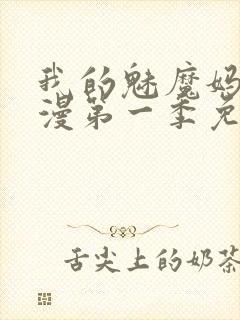 我的魅魔妈
漫第一季免
舌尖上的奶茶